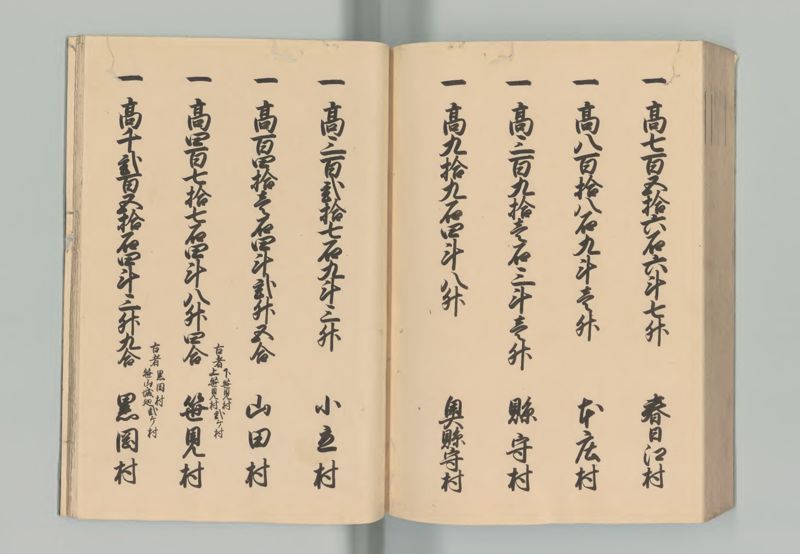 一 高七百五拾六石六斗七升 春日江村
一 高八百拾八石九斗壱升 本庄村
一 高三百九拾壱石三斗壱升 縣守村
一 高九拾九石四斗八升 奥縣守村
一 高三百弐拾七石九斗三升 小立村
一 高百四拾壱石四斗弐升五合 山田村
古者 下笹見村 上笹見村 弐ケ村
一 高四百七拾七石四斗八升四合 笹見村
古者 黒岡村 笹山城廻 弐ケ村
一 高千弐百五拾石四斗三升九合 黒岡村